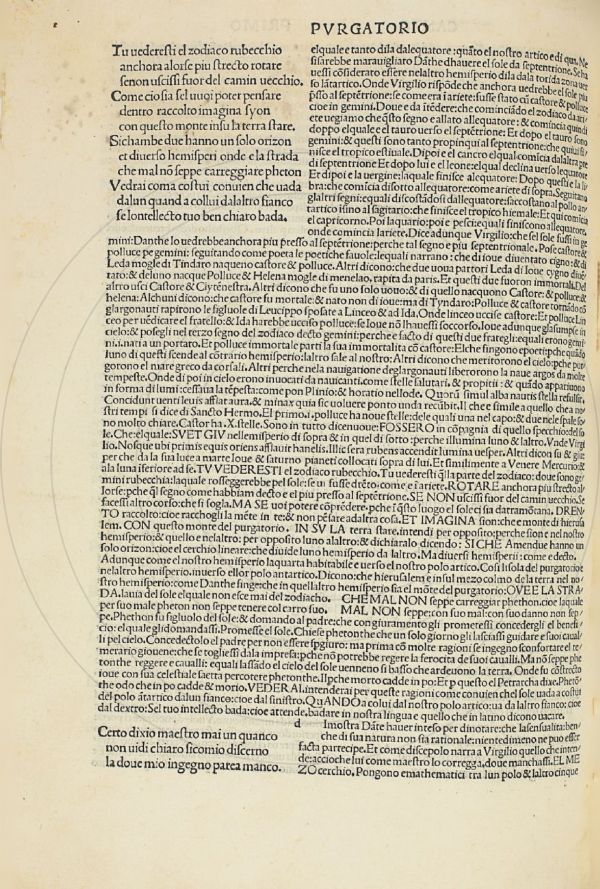 PVRGATORIO
Tu uederesti el zodiaco rubecchio
anchora alorse piu strecto rotare
senon uscissi fuor del camin uecchio.
Come cio sia sel uuoi poter pensare
dentro raccolto imagina syon
con questo monte insu la terra stare.
Sichambe due hanno un solo orizon
et diuerso hemisperi onde la strada
che mal nō seppe carreggiar pheton
Vedrai coma costui conuien che uada
dalun quand a collui dalaltro fianco
se lontellecto tuo ben chiaro bada.
elquale e tanto di la dalequatore: quāto el nostro artico e di qua. Me
sisirebbe marauigliato Dāthe dhauere el sole da septentrione. Se ha
uessi cōsiderato essere nelaltro hemisperio dila dala torida zona uer
so lātartico. Onde Virgilio rispōde che anchora uedrebbe el sole piu
presso al septētrione: se come era i ariete: fusse stato cū castore & polluce
cioe in gemini. Doue e da itēdere: che cominciando el zodiaco da ari
ete uegiamo che q̄sto segno e allato allequatore: & comincia quindi
doppo elquale e el tauro uerso el septētrione: Et dopo el tauro sono
gemini: & questi sono tanto propinqui al septentrione: che quiui si fi
nisce el tropico estiuale. Dipoi e el cancro el qual comīcia dalaltra pte
di septentrione Et dopo lui e el leone: elqual declina uerso lequatore
Et dipoi e la uergine: laquale finisce alequatore: Dopo queste e la li
bra: che comīcia disotto allequatore: come ariete di sopra. Seguitano
tartico isino al sagitario: che finisce el tropico hiemale: Et qui comīcia
el capricorno. Poi laquario: poi e pesci: equali finiscono allequatore.
onde comincia lariete. Dice adunque Virgilio: che sel sole fussi in ge
mini: Danthe lo uedrebbe anchora piu presso al septentrione: perche tal segno e piu septentrionale. Pose castore &
polluce pe gemini: seguitando come poeta le poetiche fauole: lequali narrano: che di ioue diuentato cigno: & di
Leda mogle di Tindaro nacque castore & polluce. Altri dicono: che due uoua partori Leda di Ioue cygno diuē
tato: & deluno nacque Polluce & Helena mogle di menelao, rapita da paris. Et questi due furon immortali. Del
altro usci Castore & Clytēnestra. Altri dicono che fu uno solo uouo: & di quello nacquono Castore: & polluce &
helena: Alchuni dicono: che castore fu mortale: & nato non di ioue: ma di Tyndaro: Polluce & castore
glargonauti rapirono le figluole di Leucippo sposate a Linceo & ad Ida. Onde linceo uccise castore: Et polluce Lin
ceo per uēdicare el fratello: & Ida harebbe ucciso polluce: se Ioue nō lhauessi soccorso. Ioue adunque glasumpse in
cielo: & posegli nel terzo segno del zodiaco decto gemini: perche e facto di questi due frategli: equali erono gemi
ni. i. nati a un portato. Et polluce immortale parti la sua immortalita cō castore: Elche fingono e poeti: pche quādo
luno di questi scende al cōtrario hemisperio: laltro sale al nostro: Altri dicono che meritorono el cielo: pche pur
gorono el mare greco da corsali. Altri perche nela nauigatione deglargonauti liberorono la naue argos da molte
tempeste. Onde di poi in cielo erono inuocati da nauicanti. come stelle salutari. & propitii: & quādo appariuono
in forma di lumi: cessaua la tēpesta: come pon Plinio: & horatio nellode. Quorū simul alba nautis stella refulsit.
Concidunt uenti leuis afflat aura. & minax quia sic uoluere ponto unda recūbit. Il che e simile a quello che a no
stri tempi si dice di Sancto Hermo. El primo. i. polluce ha noue stelle: dele quali una nel capo: & due nele spale so
no molto chiare. Castor ha. X. stelle. Sono in tutto dicenuoue: FOSSERO in cōpagnia di quello specchio: del so
le. Che: elquale. SV ET GIV nellemisperio di sopra & in quel di sotto: perche illumina luno & laltro. Vnde Virgi
lio. Nosque ubi primis equis oriens afflauit hanelis. Illic sera rubens accendit lumina uesper. Altri dicon su & giu:
per che da la sua luce a marte Ioue & saturno pianeti collocati sopra di lui. Et similmente a Venere Mercurio: &
ala luna iferiore ad se. TV VEDERESTI el zodiaco rubecchio. Tu uederesti q̄lla parte del zodiaco: doue sono ge
mini rubecchia: laquale rosseggerebbe pel sole: se ui fusse drēto: come e i ariete. ROTARE anchora piu strecto al
lorse: pche q̄l segno come habbiam decto e el piu presso al septētrione. SE NON uscissi fuor del camin uecchio. Se
facessi altro corso: che si fogla. MA SE uoi potere cōprēdere. pche i q̄sto luogo el sole ci sia da tramōtana. DREN
TO raccolto: cioe racchogli la mēte in te: & non pēsare ad altra cosa. ET IMAGINA sion: che monte di hierusa
lem. CON questo monte del purgatorio. IN SV LA terra stare. intendi per opposito: perche sion e nel nostro
hemisperio: & quello e nelaltro: per opposito luno alaltro: & dichiaralo dicendo: SI CHE Amendue hanno un
solo orizon: cioe el cerchio lineare: che diuide luno hemisperio da laltro. Ma diuersi hemisperi: come e decto:
Adunque come el nostro hemisperio laquarta habitabile e uerso el nostro polo artico. Cosi lisola del purgatorio
nelaltro hemisperio. inuerso ellor polo antartico. Dicono: che hierusalem e in sul mezo colmo de la terra nel no
stro hemisperio: come Danthe finge: che in quellaltro hemisperio sia el mōte del purgatorio: OVE E LA STRA
DA. la uia del sole el quale non esce mai del zodiacho. CHE MAL NON seppe carreggiar phethon. cioe laquale
per suo male pheton non seppe tenere col carro suo. MAL NON seppe: con suo mal: con suo danno non sep
pe. Phethon fu figluolo del sole: & domando al padre: che con giuramento gli promettessi concedergli el benefi
cio: el quale gli domandassi. Promesse el sole. Chiese phetonthe che un solo giorno gli lasciassi guidare e suoi caual
li pel cielo. Concedectolo el padre per non essere spgiuro: ma prima cō molte ragioni se ingegno sconfortare el te
merario giouene: che se toglessi dala impresa: pche nō potrebbe regere la ferocita de suoi caualli. Ma nō seppe phe
tonthe reggere e caualli: equali lassādo el cielo del sole uenneno si basso che ardeuono la terra. Onde fu cōstrecto
ioue con sua celestiale saetta percotere phetonthe. Il pche morto cadde in po: Et p questo el Petrarcha dixe. Phetō
the odo che in po cadde & morio. VEDERAI. intenderai per queste ragioni come conuien chel sole uada a costui
del polo ātartico dalun fianco: cioe dal sinistro. QVANDO a colui dal nostro polo artico: ua dal altro fianco: cioe
dal dextro: Sel tuo intellecto bada: cioe attende. badare in nostra lingua e quello che in latino dicono uacare.
Certo dixio maestro mai un quanco
non uidi chiaro sicomio discerno
la doue mio ingegno parea manco.
d Imostra Dāte hauer inteso per dinotare: che la sensualita: ben
che di sua natura non sia rationale: nientedimeno ne puo esser
facta partecipe. Et come discepolo narra a Virgilio quello che inten
de: accioche lui come maestro lo corregga. doue manchassi. EL ME
ZO cerchio. Pongono e mathematici tra lun polo & laltro cinque